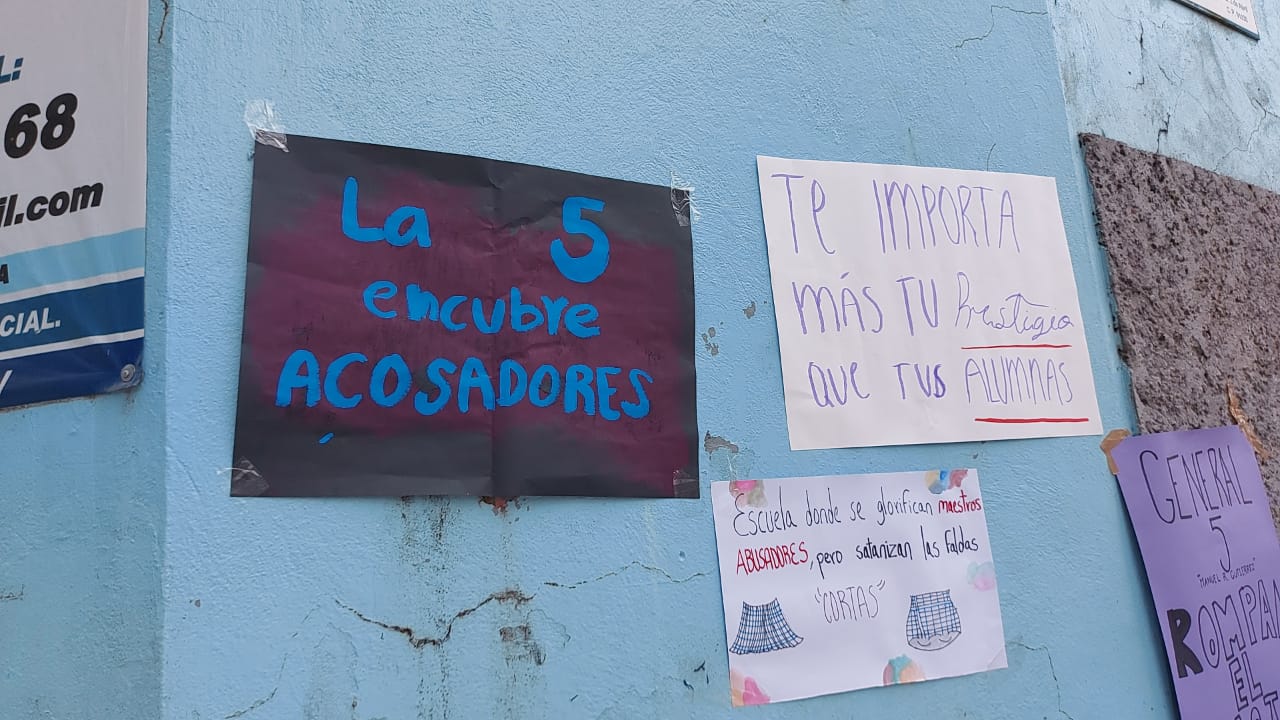 68
il.com
CIAL.
La 5
encubre
ACOSADORES
TE IMPORTA
MÁS TU Prestigio
QUE TUS ALUMNAS
Escuela donde se glorifican maestros
ABUSADORES, pero satanizan las faldas
"CORTAS"
GENERAL
5
"MANUEL R. GUTIERREZ"
ROMPAN
EL